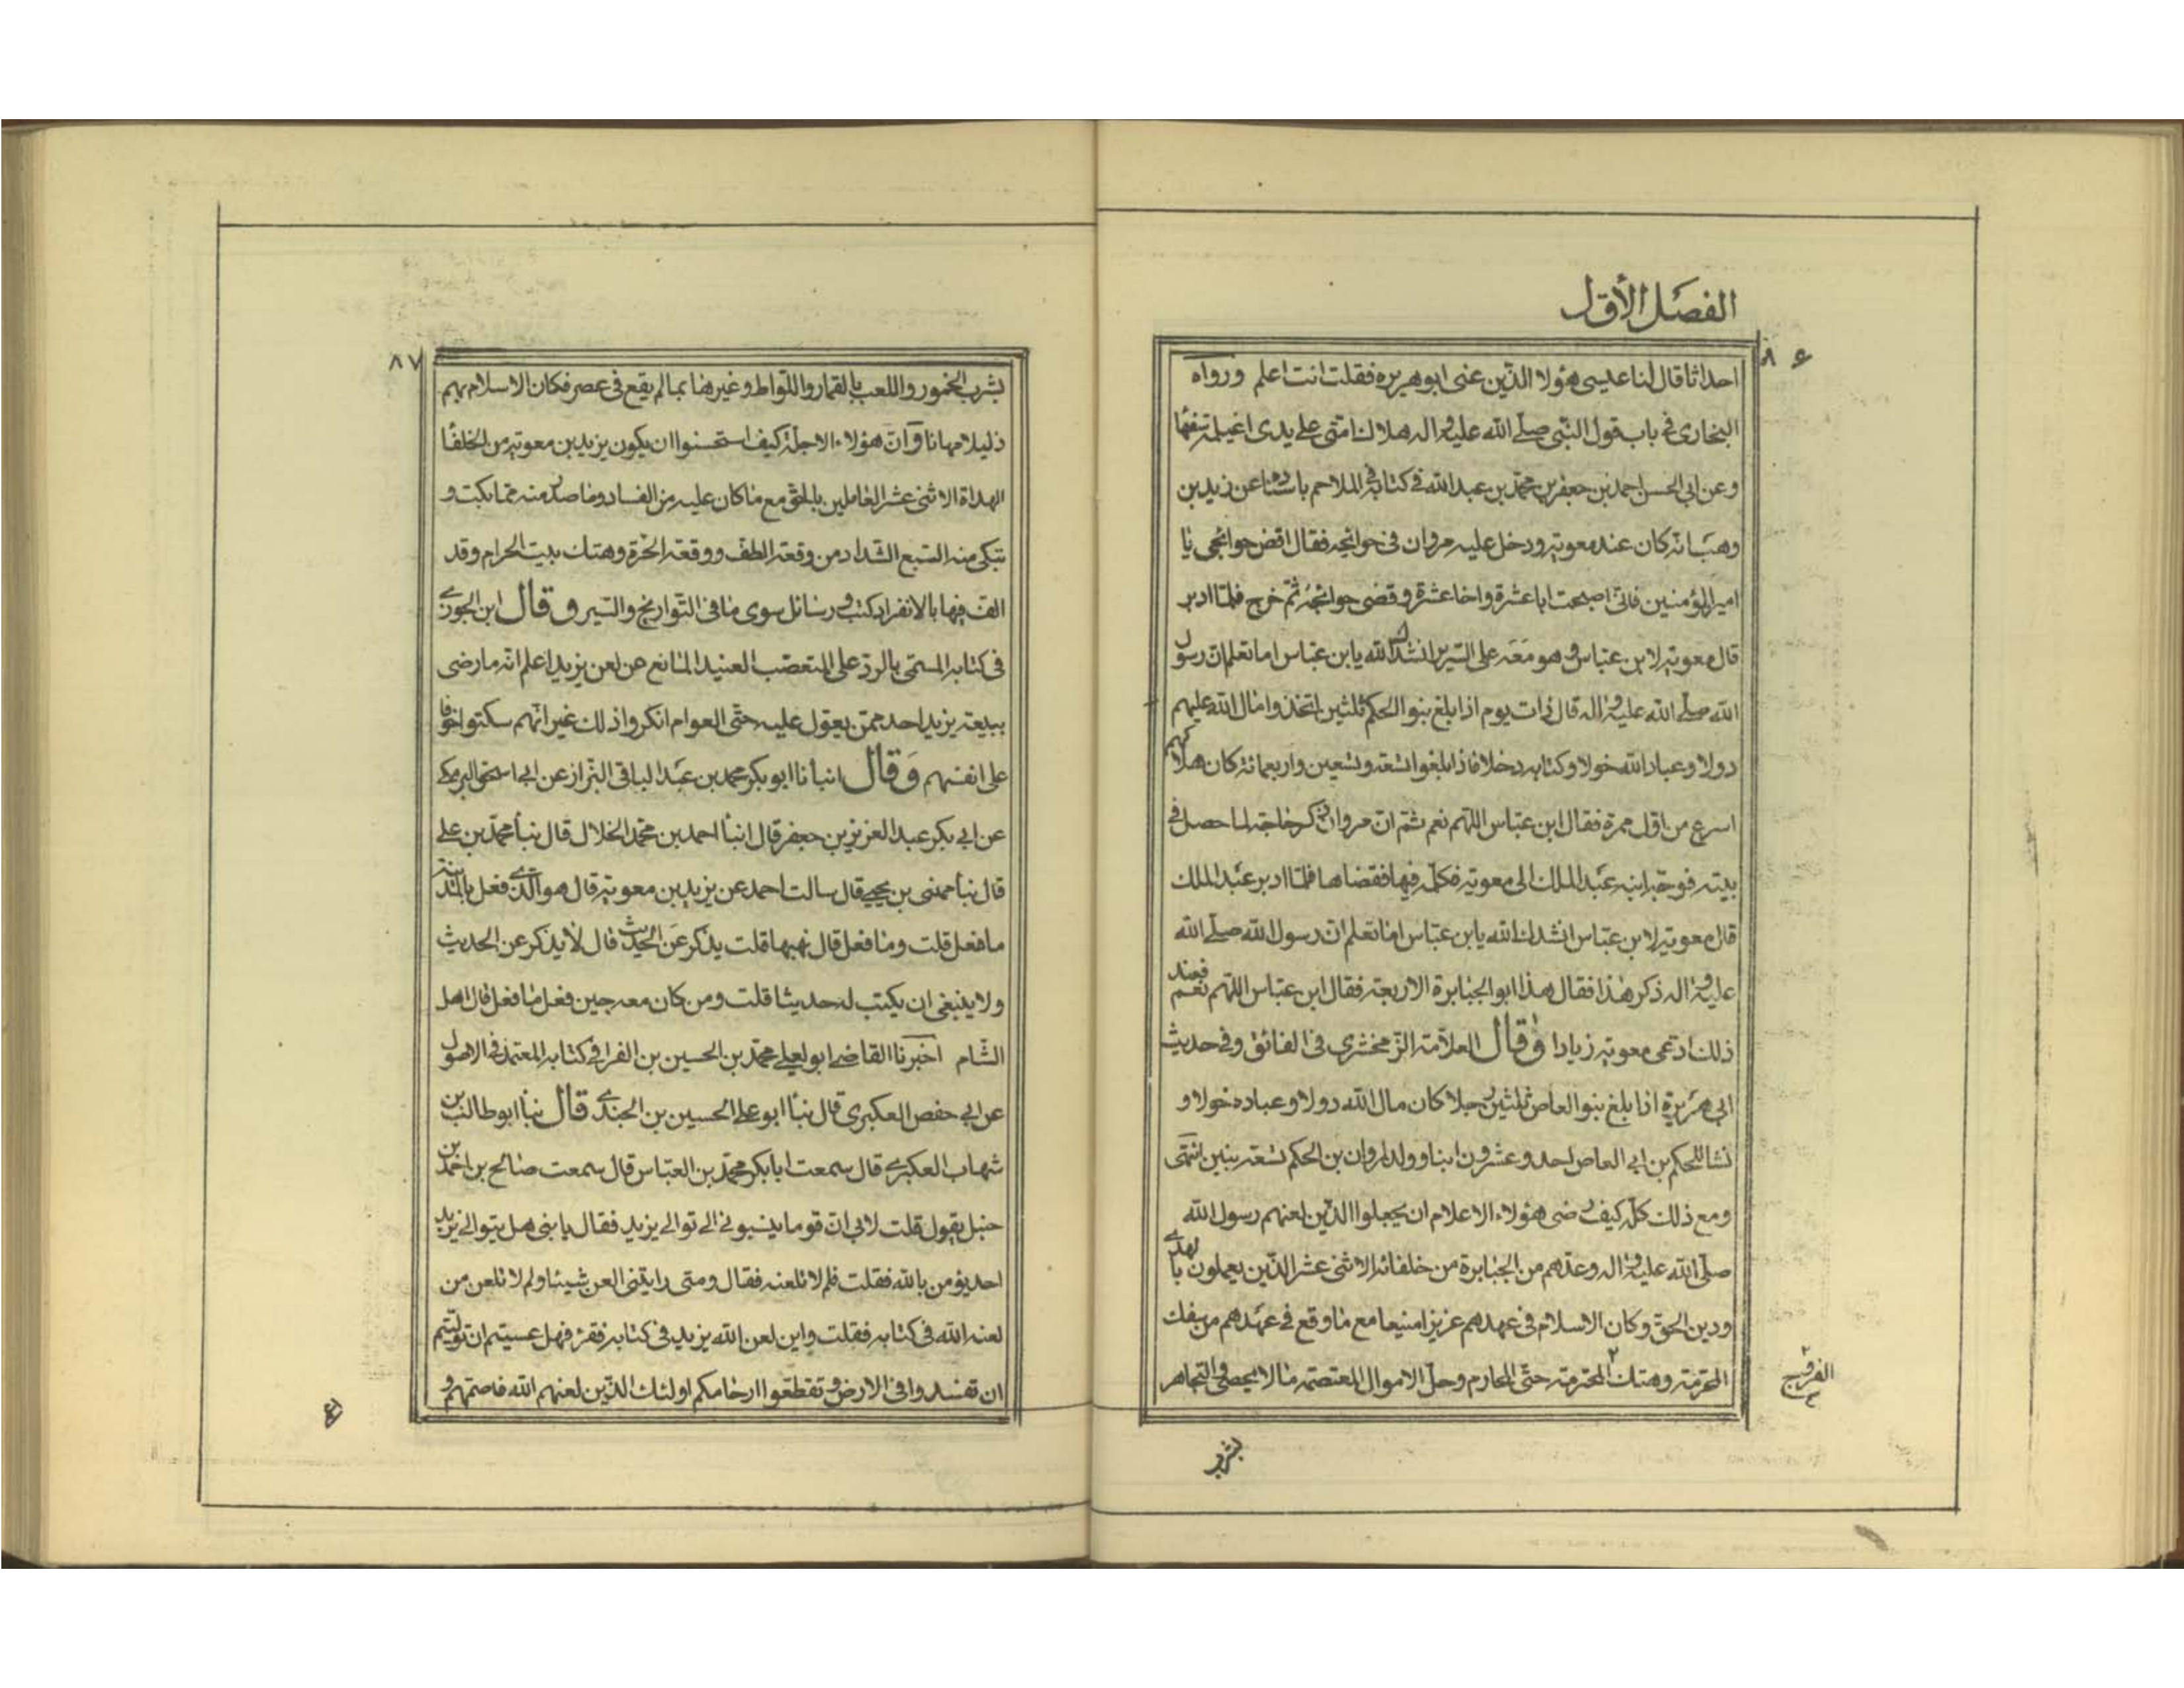 الفصل الأول
٨۶
احداثا قال لنا عيسى هؤلا الذين عنى ابو هريره فقلت انت اعلم ورواه
البخارى فى باب قول النبى صلى الله عليه واله هلاك امتى على يدى اغيلمة سفهاء
وعن ابى الحسن احمد بن جعفر بن محمد بن عبد الله فى كتابه فى الملاحم باسناده عن زيد بن
وهب انه كان عند معوية ودخل عليه مروان فى حوائجه فقال اقض حوائجى يا
امير المؤمنين فانى اصبحت ابا عشرة واخا عشرة وقضى حوائجه ثم خرج فلما ادبر
قال معوية لابن عباس وهو معه على السرير انشدك الله يابن عباس اما تعلم ان رسول
الله صلى الله عليه واله قال ذات يوم اذا بلغ بنو الحكم ثلثين اتخذوا مال الله عليهم
دولا وعباد الله خولا وكتابه دخلا فاذا بلغوا تسعة وتسعين واربعمائة كان هلاكهم
اسرع من اول مرة فقال ابن عباس اللهم نعم ثم ان مروان ذكر حاجة لما حصل فى
بيته فوجه ابنه عبد الملك الى معوية فكلمه فيها فقضاها فلما ادبر عبد الملك
قال معوية لابن عباس انشدك الله يابن عباس اما تعلم ان رسول الله صلى الله
عليه واله ذكر هذا فقال هذا ابو الجبابرة الاربعة فقال ابن عباس اللهم نعم فعند
ذلك ادعى معوية زيادا وقال العلامة الزمخشرى فى الفائق وفى حديث
ابى هريرة اذا بلغ بنو العاص ثلثين رجلا كان مال الله دولا وعباده خولا و
نشا للحكم بن ابى العاص احد وعشرون ابنا وولد لمروان بن الحكم تسعة بنين انتهى
ومع ذلك كله كيف رضى هؤلاء الاعلام ان يجعلوا الذين لعنهم رسول الله
صلى الله عليه واله وعدهم من الجبابرة من خلفائه الاثنى عشر الذين يعملون بالهدى
ودين الحق وكان الاسلام فى عهدهم عزيزا منيعا مع ما وقع فى عهدهم من سفك
المحرمة وهتك ٢ المحترمة حتى المحارم وحل الاموال المعتصمة ما لا يحصى والتجاهر
٢ الفروج
بشرب
٨٧
بشرب الخمور واللعب بالقمار واللواط وغيرها بما لم يقع فى عصر فكان الاسلام بهم
ذليلا مهانا وان هؤلاء الاجلة كيف استحسنوا ان يكون يزيد بن معوية من الخلفا
الهداة الاثنى عشر العاملين بالحق مع ما كان عليه من الفساد وما صدر منه مما بكت و
تبكى منه السبع الشداد من وقعة الطف ووقعة الحرة وهتك بيت الحرام وقد
الف فيها بالانفراد كتب ورسائل سوى ما فى التواريخ والسير وقال ابن الجوزى
فى كتابه المسمى بالرد على المتعصب العنيد المانع عن لعن يزيد اعلم انه ما رضى
ببيعة يزيد احد ممن يعول عليه حتى العوام انكروا ذلك غير انهم سكتوا خوفا
على انفسهم وقال انبأنا ابو بكر محمد بن عبد الباقى البزاز عن ابى اسحق البرمكى
عن ابى بكر عبد العزيز بن جعفر قال انبأ احمد بن محمد الخلال قال نبأ محمد بن على
قال نبأ مهنى بن يحيى قال سالت احمد عن يزيد بن معوية قال هو الذى فعل بالمدينة
ما فعل قلت وما فعل قال نهبها قلت يذكر عن الحديث قال لا يذكر عن الحديث
ولا ينبغى ان يكتب له حديثا قلت ومن كان معه حين فعل ما فعل قال اهل
الشام اخبرنا القاضى ابو يعلى محمد بن الحسين بن الفرا فى كتابه المعتمد فى الاصول
عن ابى حفص العكبرى قال نبأ ابو على الحسين بن الجندى قال نبأ ابو طالب بن
شهاب العكبرى قال سمعت ابا بكر محمد بن العباس قال سمعت صالح بن احمد بن
حنبل يقول قلت لابى ان قوما ينسبونى الى توالى يزيد فقال يا بنى هل يتوالى يزيد
احد يؤمن بالله فقلت فلم لا تلعنه فقال ومتى رايتنى العن شيئا ولم لا تلعن من
لعنه الله فى كتابه فقلت واين لعن الله يزيد فى كتابه فقرء فهل عسيتم ان توليتم
ان تفسدوا فى الارض وتقطعوا ارحامكم اولئك الذين لعنهم الله فاصمهم و